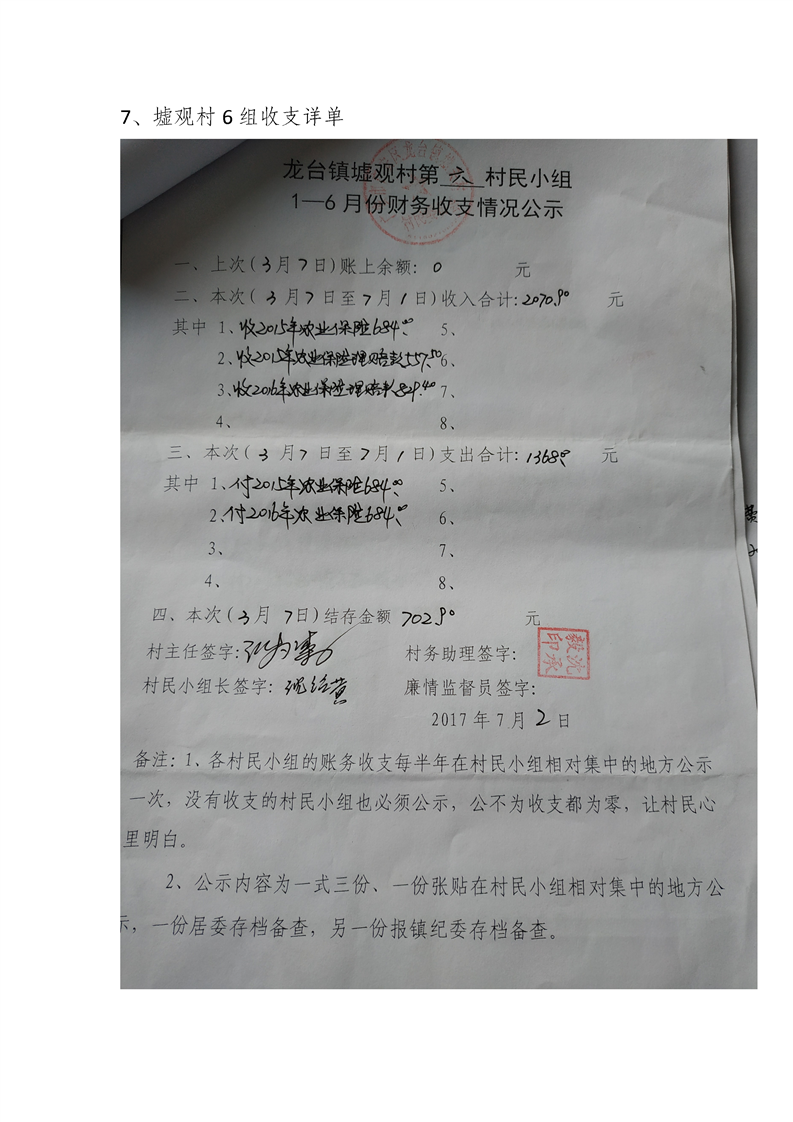 7、墟观村 6 组收支详单
龙台镇墟观村第 六 村民小组
1—6 月份财务收支情况公示
一、上次(3月7日)账上余额: 0 元
二、本次( 3 月7 日至7月1日)收入合计:2070.90 元
其中 1、收2015年农业保险684.00 5、
2、收2015年农业保险理赔款557.50 6、
3、收2016年农业保险理赔款829.40 7、
4、 8、
三、本次( 3 月7 日至7月1日)支出合计:1368.00 元
其中 1、付2015年农业保险684.00 5、
2、付2016年农业保险684.00 6、
3、 7、
4、 8、
四、本次(3月 7日)结存金额 702.90 元
村主任签字: 村务助理签字:
村民小组长签字: 廉情监督员签字:
2017 年 7 月 2 日
备注: 1、各村民小组的账务收支每半年在村民小组相对集中的地方公示
一次，没有收支的村民小组也必须公示，公不为收支都为零，让村民心
里明白。
2、公示内容为一式三份、一份张贴在村民小组相对集中的地方公
示，一份居委存档备查，另一份报镇纪委存档备查。